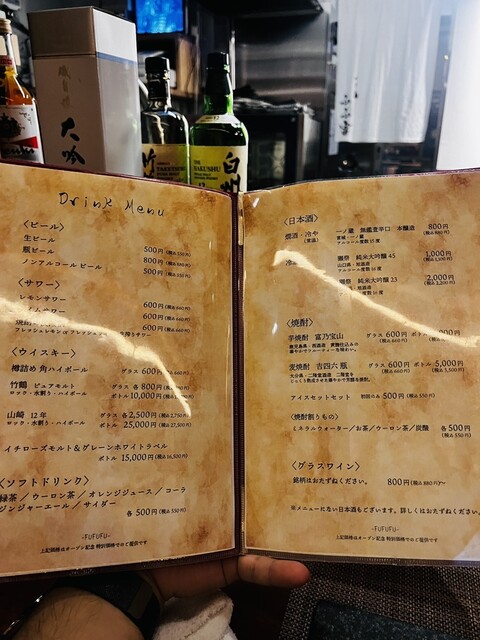 大吟
THE
HAKUSHU
白州
Drink Menu
〈ビール〉
生ビール
瓶ビール 500円(税込550円)
ノンアルコールビール 800円(税込880円)
500円(税込550円)
〈サワー〉
レモンサワー
600円(税込660円)
600円(税込660円)
600円(税込660円)
〈ウイスキー〉
樽詰め 角ハイボール グラス 600円(税込660円)
竹鶴 ピュアモルト グラス 各800円(税込880円)
ロック・水割り・ハイボール ボトル 10,000円
山崎 12年 グラス 各2,500円(税込2,750円)
ロック・水割り・ハイボール ボトル 25,000円(税込27,500円)
イチローズモルト&グレーンホワイトラベル
ボトル 15,000円(税込16,500円)
〈ソフトドリンク〉
緑茶／ウーロン茶／オレンジジュース／コーラ
ジンジャーエール／サイダー
各500円(税込550円)
-FUFUFU-
上記価格はオープン記念 特別価格でのご提供です
〈日本酒〉
燗酒・冷や 一ノ蔵 無鑑査辛口 本醸造 800円
(常温) 宮城・一ノ蔵 (税込880円)
アルコール度数15度
獺祭 純米大吟醸 45 1,000円
山口県・旭酒造 (税込1,100円)
アルコール度数16度
獺祭 純米大吟醸 23 2,000円
旭酒造 (税込2,200円)
度数16度
〈焼酎〉
芋焼酎 富乃宝山 グラス 600円 ボトル
鹿児島県・西酒造 黄麹仕込みの (税込660円)
麦焼酎 吉四六 瓶 グラス 600円 ボトル 5,000円
大分県・二階堂酒造 二階堂を (税込660円) (税込5,500円)
じっくり熟成させ
アイスセットセット 初回のみ 500円(税込550円)
〈焼酎割りもの〉
ミネラルウォーター／お茶／ウーロン茶／炭酸 各500円
(税込550円)
〈グラスワイン〉
銘柄はおたずねください。 800円(税込880円)～
※メニューにない日本酒もございます。詳しくはおたずねください。
-FUFUFU-
上記価格はオープン記念 特別価格でのご提供です